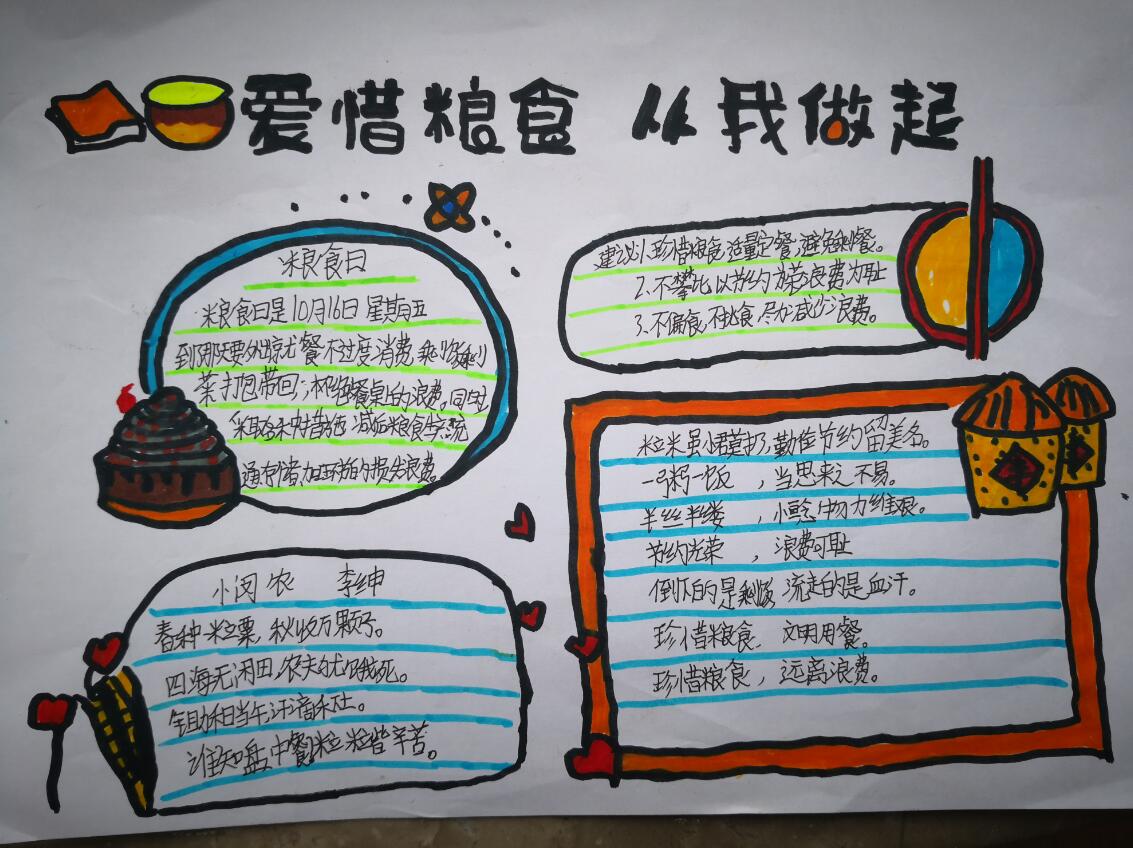 爱惜粮食 从我做起
粮食日
粮食日是10月16日 星期五
到那天要外出就餐不过度消费剩饭剩
菜打包带回;杜绝餐桌上的浪费。同时
采取 措施 减低粮食
通存储,加环节的损失浪费。
建议1.珍惜粮食,适量定餐,避免剩餐。
2.不攀比,以节约为荣,浪费为耻
3.不偏食,不挑食,尽力减少浪费。
粒米虽小君莫扔,勤俭节约留美名。
一粥一饭 ,当思来之不易。
半丝半缕 ,小念物力维艰。
节约光荣 ,浪费可耻
倒下的是剩饭 流走的是血汗。
珍惜粮食, 文明用餐。
珍惜粮食, 远离浪费。
小闵农 李绅
春种一粒粟,秋收万颗子。
四海无闲田,农夫犹饿死。
锄和日当午,汗滴禾土。
谁知盘中餐粒粒皆辛苦。